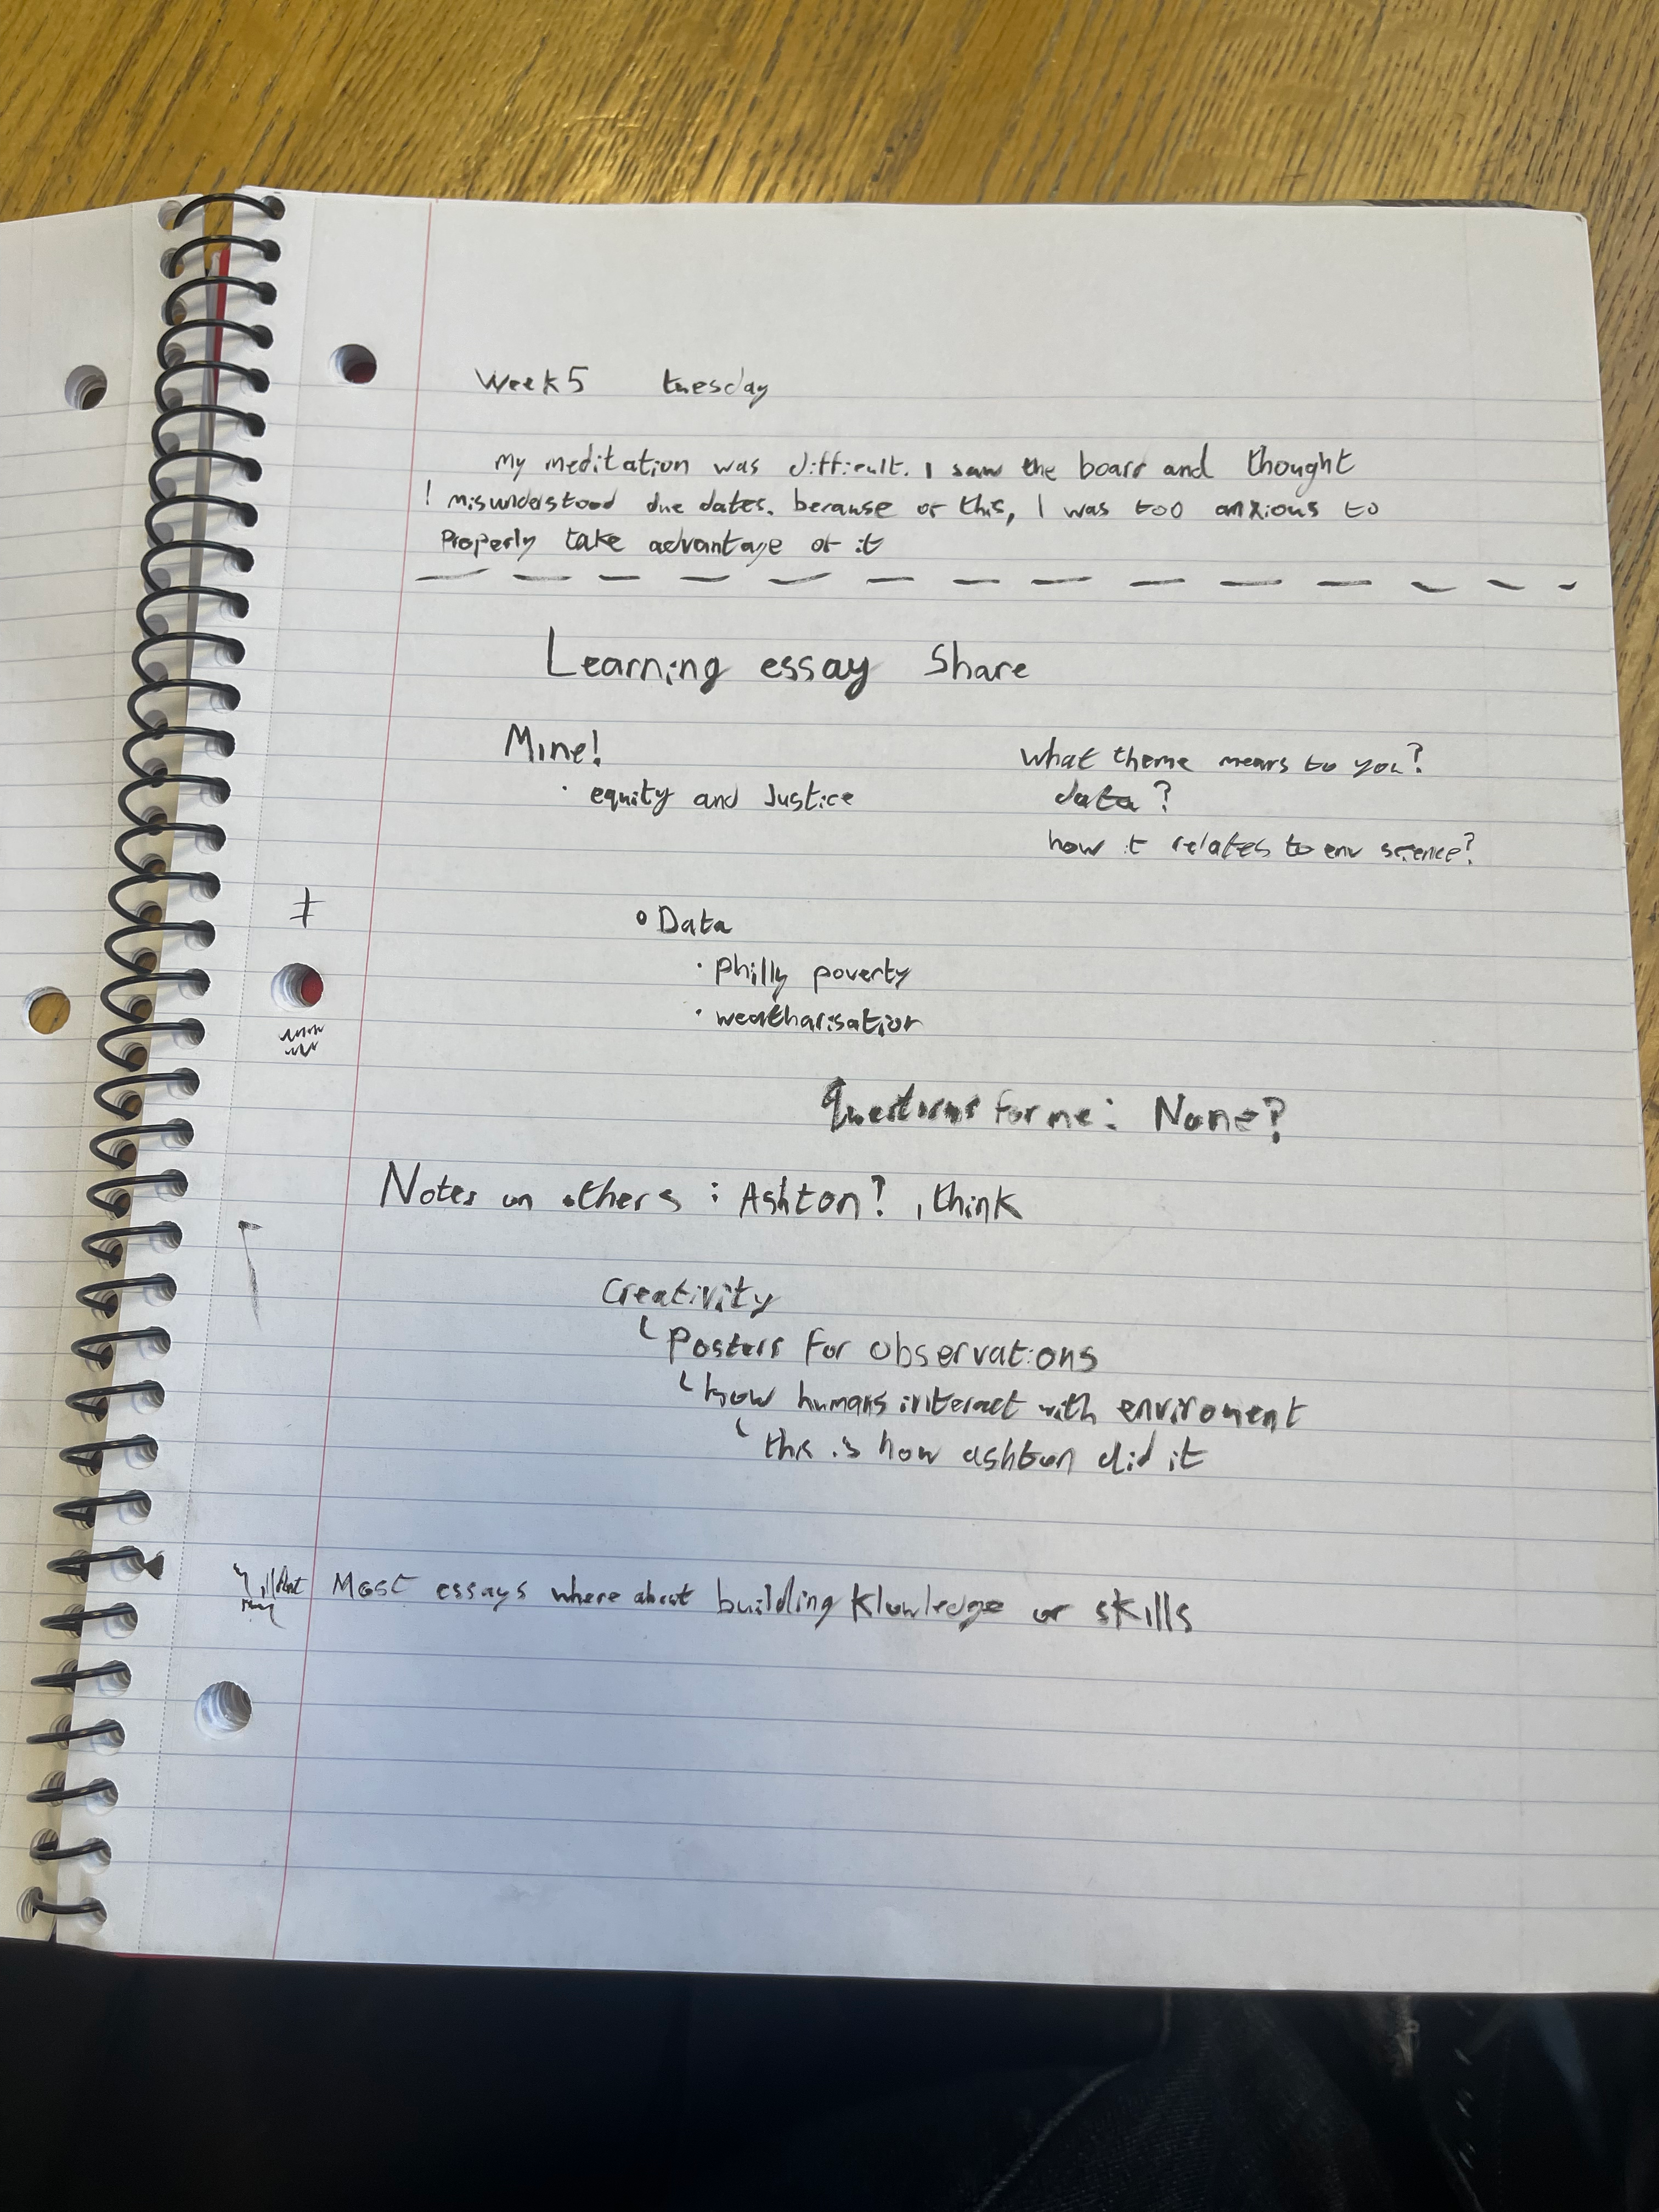 Week 5 tuesday
my meditation was difficult. I saw the board and thought
I misunderstood due dates. because of this, I was too anxious to
Properly take advantage of it
Learning essay Share
Mine!
· equity and Justice
What theme means to you?
data?
how it relates to env science?
Data
· Philly poverty
· weatharisation
Questions for me: None?
Notes on others: Ashton? I think
Creativity
Posters for observations
how humans interact with enviroment
this is how ashton did it
Most essays where about building klowledge or skills